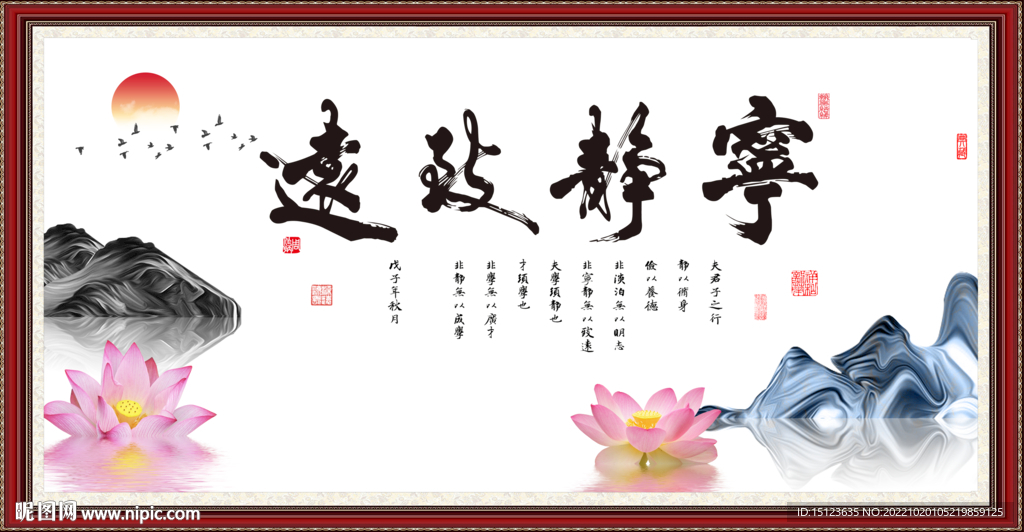 寧靜致遠
夫君子之行
靜以脩身
儉以養德
非淡泊無以明志
非寧靜無以致遠
夫學須靜也
才須學也
非學無以廣才
非靜無以成學
戊子年秋月
昵图网 www.nipic.com
ID:15123635 NO:20221020105219859125